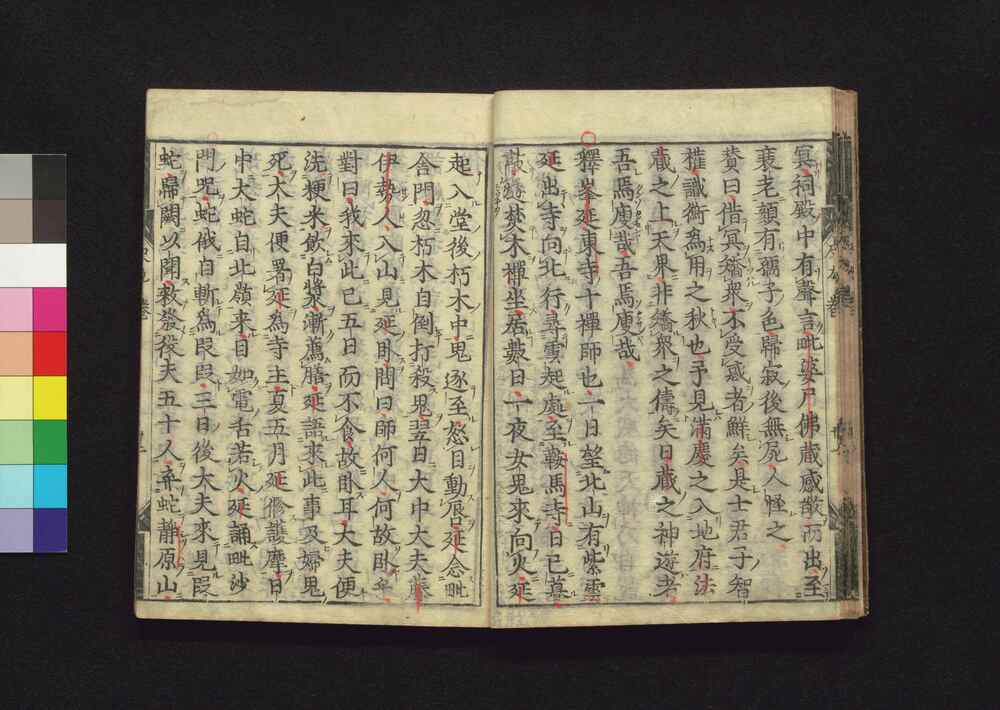 冥祠殿中有聲言毗婆尸佛藏感散而出至
衰老顏有孺子色歸寂後無屍人怪之
贊曰借冥矯衆不受惑者鮮矣是士君子智
權識術為用之秋也予見滿慶之入地府法
藏之上天界非矯衆之儔矣日藏之神遊者
吾焉廋哉吾焉廋哉
釋峯延東寺十禪師也一日望北山有紫雲
延出寺向北行尋雲起處至鞍馬寺日已暮
鼓燧焚木禪坐居數日一夜女鬼來向火延
起入堂後朽木中鬼逐至怒目動唇延念毗
舍門忽朽木自倒打殺鬼翌日大中大夫藤
伊勢人入山見延臥問曰師何人何故臥乎
對曰我來此已五日而不食故臥耳大夫便
洗粳米飲白漿漸薦膳延語來此事及婦鬼
死大夫便署延為寺主夏五月延修護摩日
中大蛇自北嶺来目如電舌若火延誦毗沙
門呪蛇俄自斬為段段三日後大夫來見段
蛇歸闕以聞敕發役夫五十人弃蛇靜原山